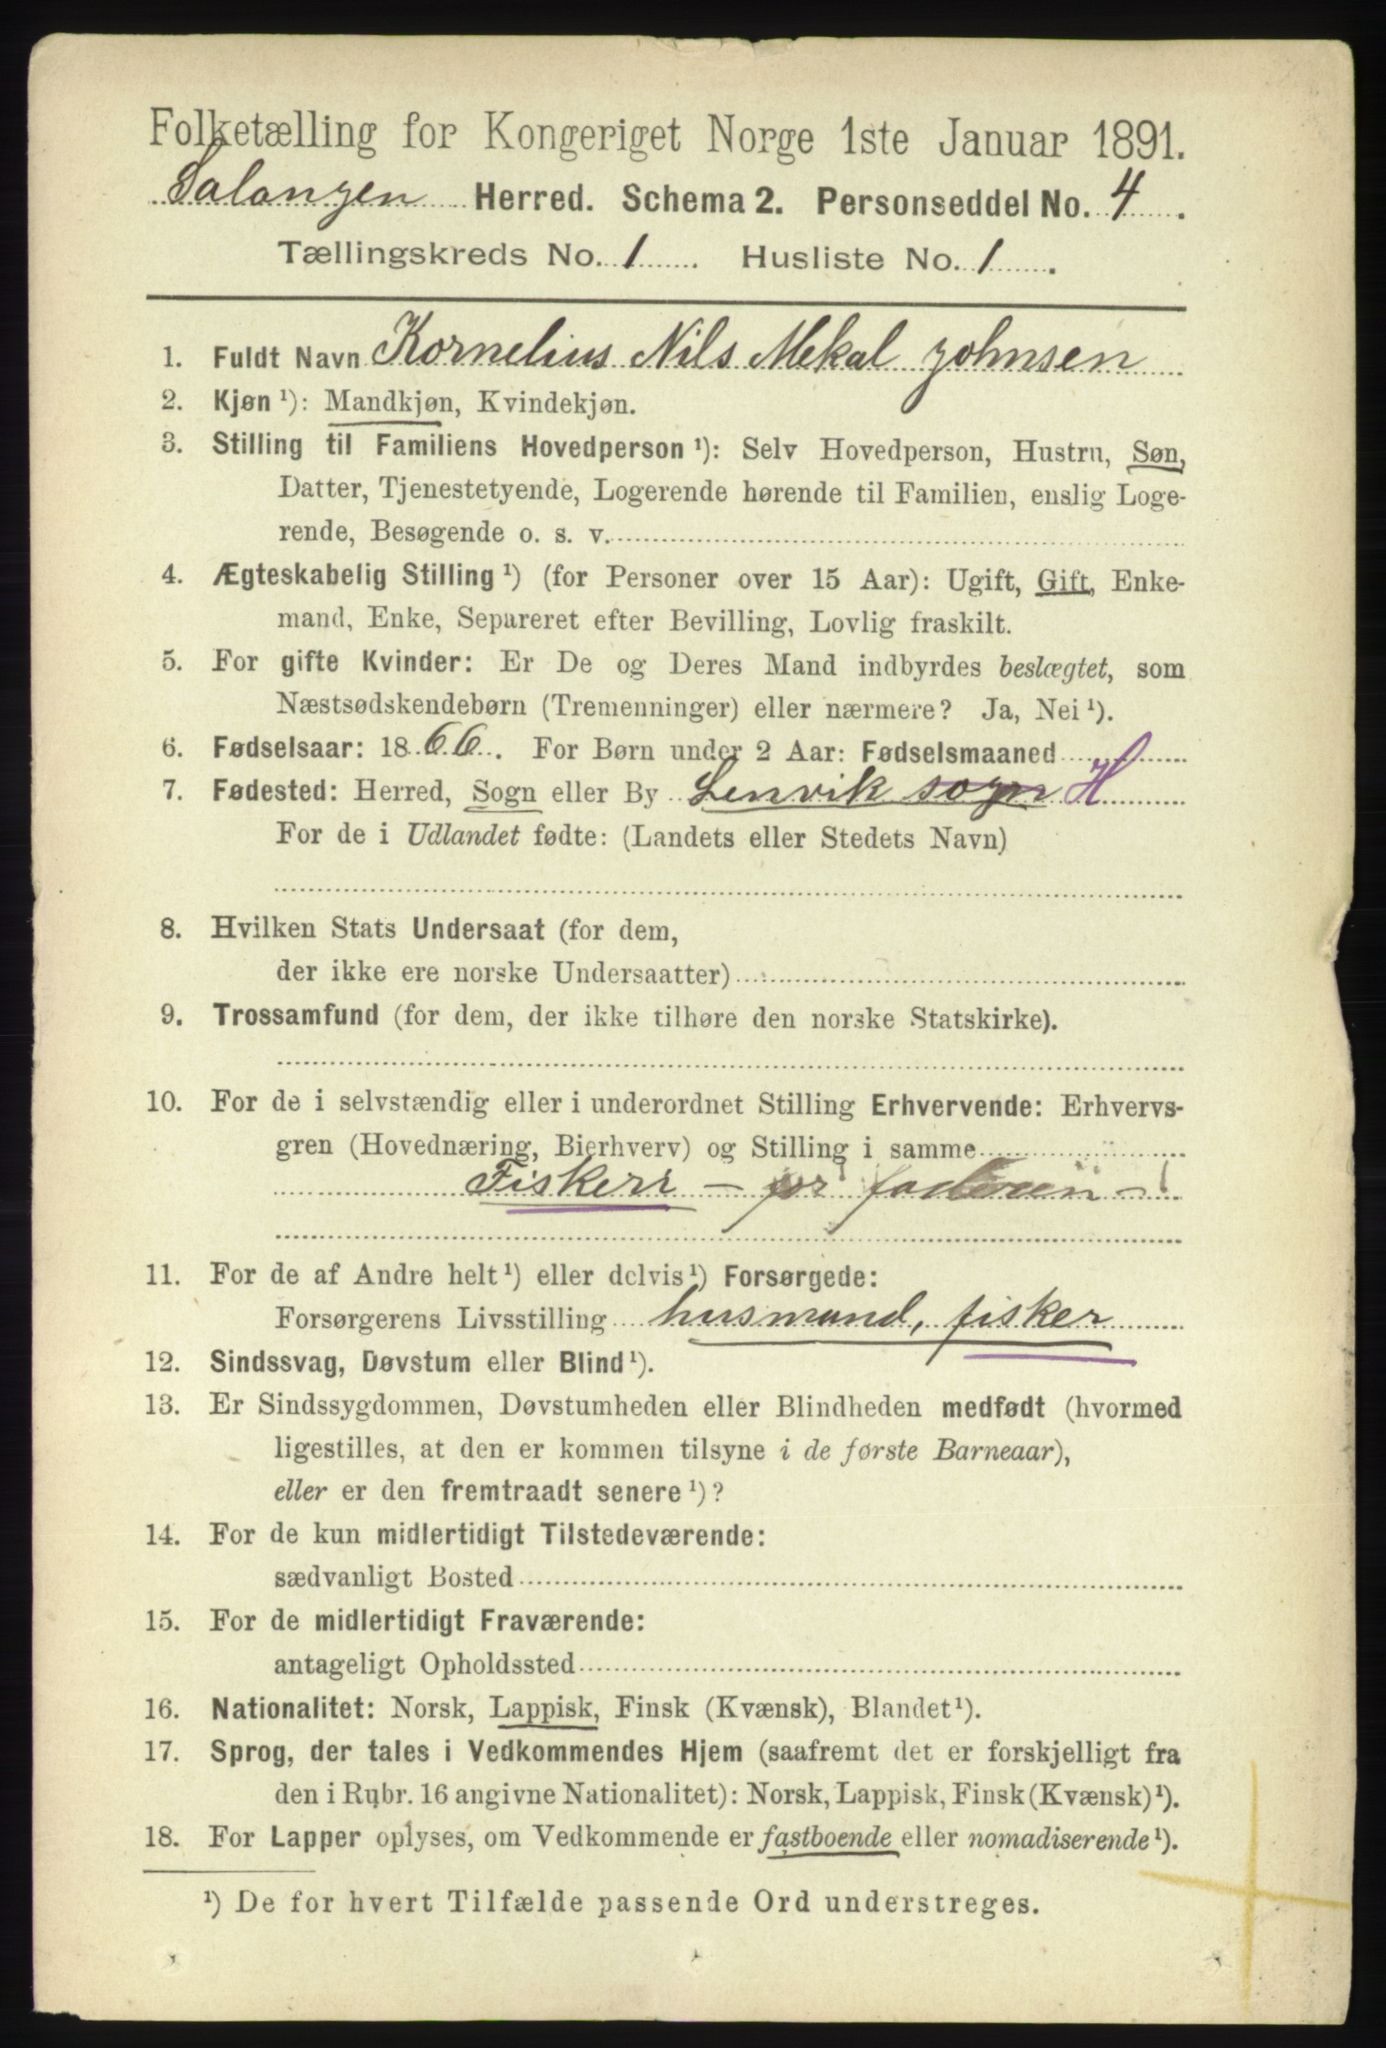 Folketælling for Kongeriget Norge 1ste Januar 1891.
Salangen Herred. Schema 2. Personseddel No. 4.
Tællingskreds No. 1 Husliste No. 1.
1. Fuldt Navn Kornelius Nils Mekal Johnsen
2. Kjøn ¹): Mandkjøn, Kvindekjøn.
3. Stilling til Familiens Hovedperson ¹): Selv Hovedperson, Hustru, Søn,
Datter, Tjenestetyende, Logerende hørende til Familien, enslig Loge-
rende, Besøgende o. s. v.
4. Ægteskabelig Stilling ¹) (for Personer over 15 Aar): Ugift, Gift, Enke-
mand, Enke, Separeret efter Bevilling, Lovlig fraskilt.
5. For gifte Kvinder: Er De og Deres Mand indbyrdes beslægtet, som
Næstsødskendebørn (Tremenninger) eller nærmere? Ja, Nei ¹).
6. Fødselsaar: 1866. For Børn under 2 Aar: Fødselsmaaned
7. Fødested: Herred, Sogn eller By Lenvik sogn H
For de i Udlandet fødte: (Landets eller Stedets Navn)
8. Hvilken Stats Undersaat (for dem,
der ikke ere norske Undersaatter)
9. Trossamfund (for dem, der ikke tilhøre den norske Statskirke).
10. For de i selvstændig eller i underordnet Stilling Erhvervende: Erhvervs-
gren (Hovednæring, Bierhverv) og Stilling i samme
Fiskerr – for faderen –
11. For de af Andre helt ¹) eller delvis ¹) Forsørgede:
Forsørgerens Livsstilling husmand, fisker
12. Sindssvag, Døvstum eller Blind ¹).
13. Er Sindssygdommen, Døvstumheden eller Blindheden medfødt (hvormed
ligestilles, at den er kommen tilsyne i de første Barneaar),
eller er den fremtraadt senere ¹)?
14. For de kun midlertidigt Tilstedeværende:
sædvanligt Bosted
15. For de midlertidigt Fraværende:
antageligt Opholdssted
16. Nationalitet: Norsk, Lappisk, Finsk (Kvænsk), Blandet ¹).
17. Sprog, der tales i Vedkommendes Hjem (saafremt det er forskjelligt fra
den i Rubr. 16 angivne Nationalitet): Norsk, Lappisk, Finsk (Kvænsk) ¹).
18. For Lapper oplyses, om Vedkommende er fastboende eller nomadiserende ¹).
¹) De for hvert Tilfælde passende Ord understreges.